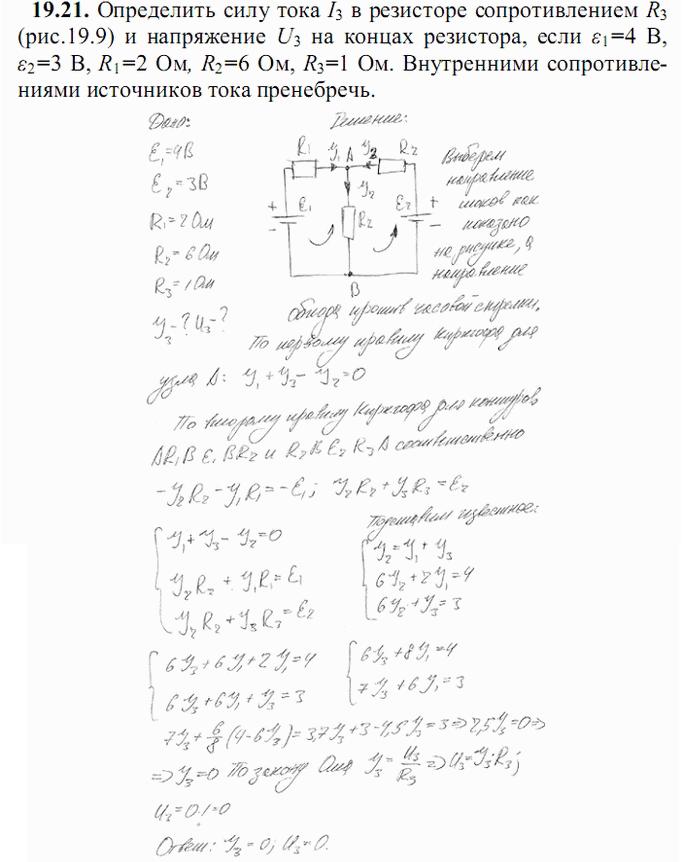 19.21. Определить силу тока I3 в резисторе сопротивлением R3
(рис.19.9) и напряжение U3 на концах резистора, если ε1=4 В,
ε2=3 В, R1=2 Ом, R2=6 Ом, R3=1 Ом. Внутренними сопротивле-
ниями источников тока пренебречь.
Дано:
ε1=4В
ε2=3В
R1=2 Ом
R2=6 Ом
R3=1 Ом
У3-? U3-?
Решение:
R1 У1 A У3 R2
У2
+ ε1 R2 ε2 +
- -
B
Выберем
направление
токов как
показано
на рисунке, а
направление
обхода против часовой стрелки,
По первому правилу Кирхгофа для
узла А: У1+У3-У2=0
По второму правилу Кирхгофа для контуров
AR1Bε1BR2 и R2Bε2R3A соответственно
-У2R2-У1R1=-ε1; У2R2+У3R3=ε2
У1+У3-У2=0
У2R2+У1R1=ε1
У2R2+У3R3=ε2
Подставим известное:
У2=У1+У3
6У2+2У1=4
6У2+У3=3
6У3+6У1+2У1=4
6У3+6У1+У3=3
6У3+8У1=4
7У3+6У1=3
7У3+6/8(4-6У3)=3,7У3+3-4,5У3=3=>2,5У3=0=>
=>У3=0 По закону Ома У3=U3/R3=>U3=У3R3;
U3=0·1=0
Ответ: У3=0; U3=0.